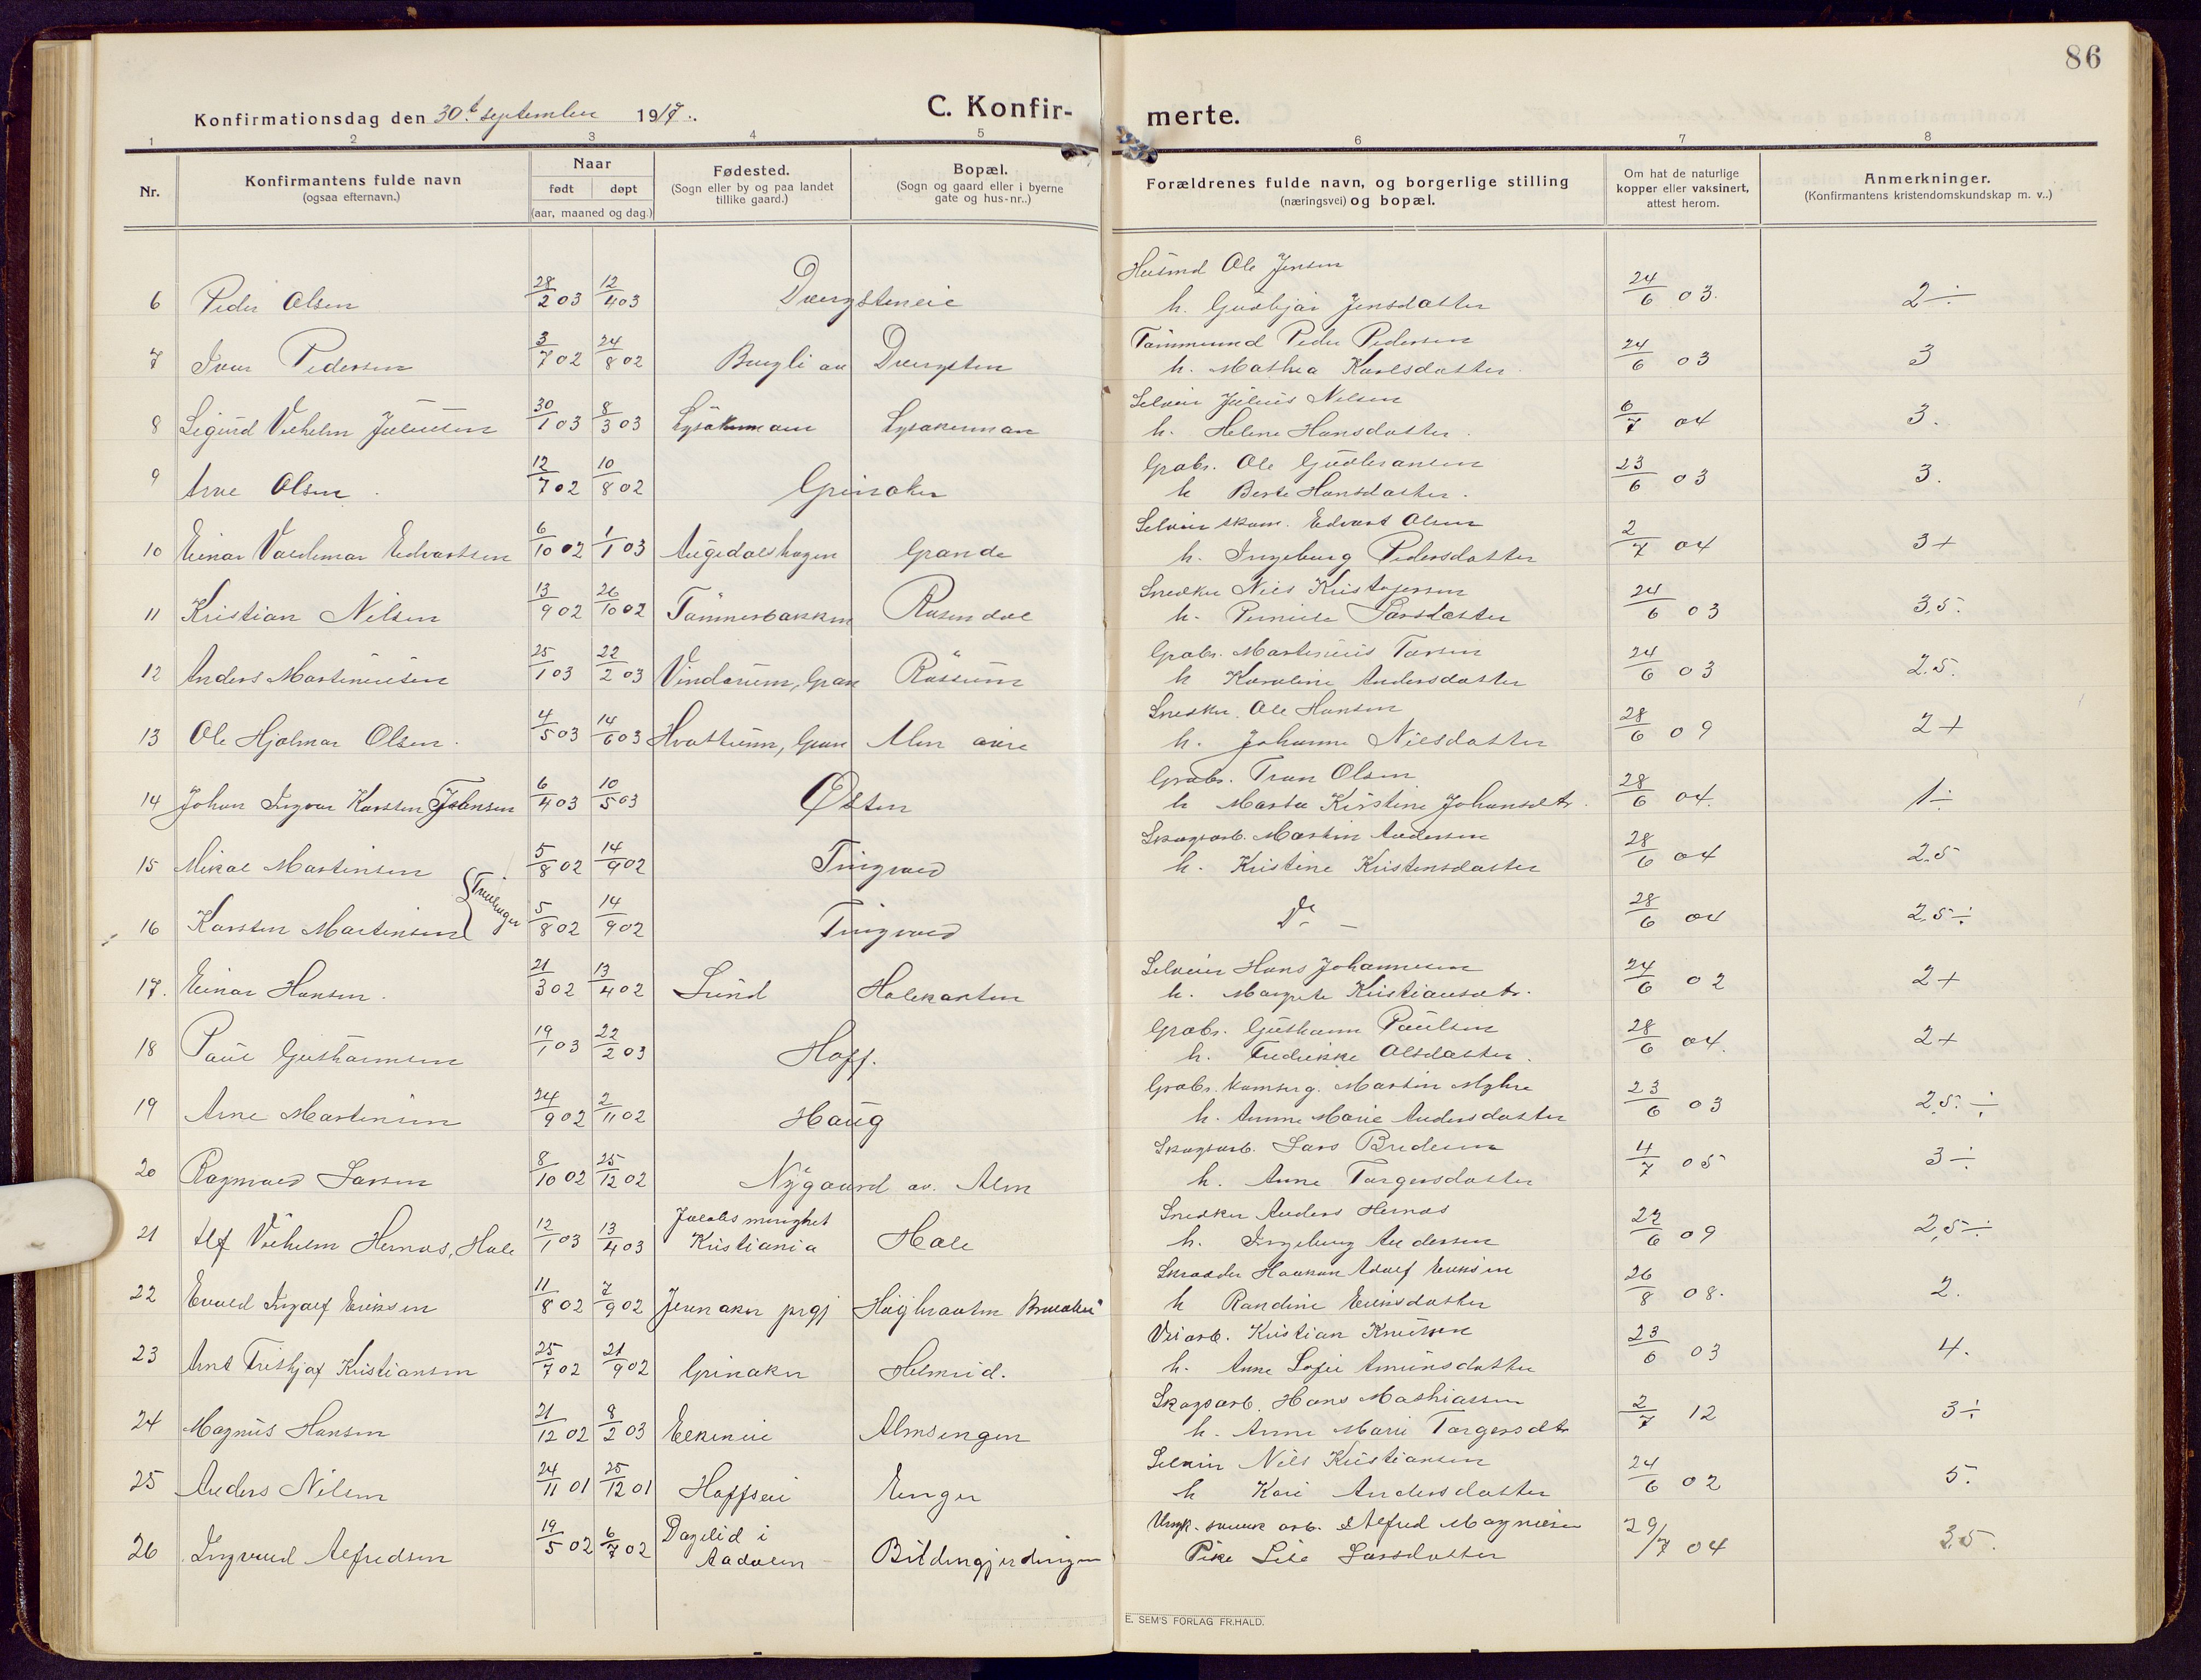 86
Konfirmationsdag den 30.t september 1917.
C. Konfir-
merte.
1 2 3 4 5 6 7 8
Nr.
Konfirmantens fulde navn
(ogsaa efternavn.)
Naar
født døpt
(aar, maaned og dag.)
Fødested.
(Sogn eller by og paa landet
tillike gaard.)
Bopæl.
(Sogn og gaard eller i byerne
gate og hus-nr..)
Forældrenes fulde navn, og borgerlige stilling
(næringsvei) og bopæl.
Om hat de naturlige
kopper eller vaksinert,
attest herom.
Anmerkninger.
(Konfirmantens kristendomskundskap m. v..)
Husmd Ole Jensen
6 Peder Olsen 28/2 03 12/4 03 Dvergsteneie h. Gudbjør Jensdatter 24/6 03. 2 ÷
Tømmermd Peder Pedersen
7 Ivar Pedersen 3/7 02 24/8 02 Bergli av Dvergsten h. Mathea Karlsdatter 24/6 03 3
Selveier Julius Nilsen
8 Sigurd Vilhelm Juliussen 30/1 03 8/3 03 Lysakermoen Lysakermoen h. Helene Hansdatter. 6/7 04 3.
Grabr. Ole Gudbransen
9 Arne Olsen. 12/7 02 10/8 02 Grinaker h Berte Hansdatter. 23/6 03 3.
Selveier skom. Edvart Olsen
10 Einar Valdemar Edvartsen 6/10 02 1/1 03 Augedalshagen Grande h. Ingeborg Pedersdatter 2/7 04 3+
Snedker Nils Kristofersen
11 Kristian Nilsen 13/9 02 26/10 02 Tømmerbakken Rosendal h. Pernille Larsdatter 24/6 03 3,5.
Grabr. Martinius Torsen
12 Anders Martiniusen 25/1 03 22/2 03 Vindorum, Gran Røssum h Karoline Andersdatter 24/6 03 2.5.
Snedker. Ole Hansen
13 Ole Hjalmar Olsen. 4/5 03 14/6 03 Hvattum, Gran Alm øvre h. Johanne Nilsdatter 28/6 09 2+
Grabr. Tron Olsen
14 Johan Ingvar Karsten Tronsen 6/4 03 10/5 03 Østen h Marta Kirstine Johansdtr. 28/6 04. 1÷
Skogsarb. Martin Andersen
15 Mikal Martinsen 5/8 02 14/9 02 Tingvold h. Kristine Kristensdatter 28/6 04 2.5
Tvillinger
16 Karsten Martinsen 5/8 02 14/9 02 Tingvold Do – 28/6 04 2,5÷
Selveier Hans Johannesen
17. Einar Hansen. 21/3 02 13/4 02 Lund Holekanten h. Margrete Kristiansdtr. 24/6 02 2+
Grabr. Guthorm Paulsen
18 Paul Guthormsen 19/1 03 22/2 03 Hoff. h. Fredrikke Olsdatter. 28/6 04. 2+
Grabr. Martin Myhre
19 Arne Martinsen 24/9 02 2/11 02 Haug h. Anne Marie Andersdatter 23/6 03 2,5. ÷
Skogsarb. Lars Bredesen
20 Ragnvald Larsen 8/10 02 25/12 02 Nygaard av. Alm h. Anne Torgersdatter 4/7 05 3÷
Jacobs menighet Snedker Anders Hernæs
21 Alf Vilhelm Hernæs, Hole 12/1 03 13/4 03 Kristiania Hole h. Ingeborg Andersen 22/6 09 2,5÷
Skrædder Haakon Adolf Eriksen
22 Evald Ingolf Eriksen 11/8 02 7/9 02 Jevnaker prgj Høgbraaten h Randine Eriksdatter 26/8 08. 2.
Kristian Knutsen
23 Arnt Fritjof Kristiansen 25/7 02 21/9 02 Grinaker Helmeid. h. Anne Sofie Amundsdatter 23/6 03 4.
Skogsarb. Hans Mathiassen
24 Magnus Hansen 21/12 02 8/2 03 Elkeneie Almsengen h. Anne Marie Torgersdtr 2/7 12 3÷
Selveier Nils Kristiansen
25 Anders Nilsen 24/11 01 25/12 01 Hoffseie Enger h Kari Andersdatter 24/6 02 5.
Dagelid i Ungk. arb. Alfred Magnussen
26 Ingvard Alfredsen 19/5 02 6/7 02 Aadalen Bildengjerdingen Pike Lise Larsdatter 29/7 04 3,5.
E. SEM'S FORLAG FR.HALD.